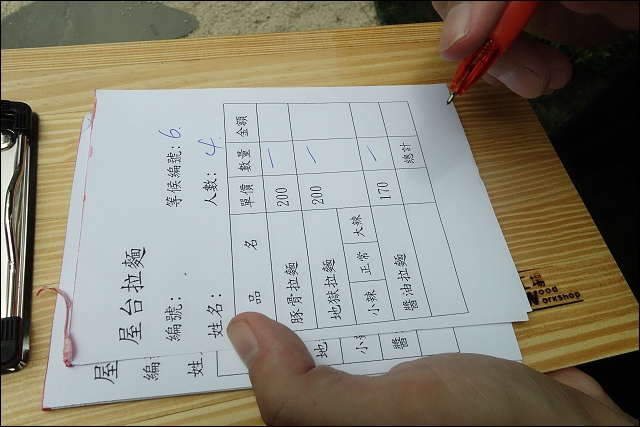 屋台拉麵
編號: 等候編號: 6.
姓名: 人數: 4.
品名 單價 數量 金額
豚骨拉麵 200 一
地獄拉麵 200 一
小辣 正常 大辣
醬油拉麵 170 一
總計
屋
編
姓
地
小
醬
Wood
Workshop